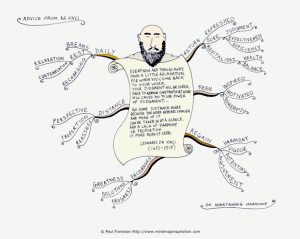 ADVICE FROM DA VINCI
BREAKS
REST
RELAXATION
DAILY
PERSPECTIVE
PROPORTION
DISTANCE
GREATNESS
SOLUTIONS
PROGRESS
RETURN
REFRESHED
JUDGEMENT
EFFECTIVENESS
EFFICIENCY
REVITALISED
HEALTH
BALANCE
KEEN
INSPIRED
MOTIVATED
REGAIN
HARMONY
VIGOUR
POTENTIAL
ENJOYMENT
EVERY NOW AND THEN GO AWAY,
HAVE A LITTLE RELAXATION,
FOR WHEN YOU COME BACK
TO YOUR WORK
YOUR JUDGEMENT WILL BE SURER,
SINCE TO REMAIN CONSTANTLY AT WORK
WILL CAUSE YOU TO LOSE POWER
OF JUDGEMENT...
GO SOME DISTANCE AWAY
BECAUSE THE WORK APPEARS SMALLER
AND MORE OF IT
CAN BE TAKEN IN AT A GLANCE,
AND A LACK OF HARMONY
OR PROPORTION
IS MORE READILY SEEN.
LEONARDO DA VINCI
(1452 - 1519)
ON MAINTAINING HARMONY
© Paul Foreman http://www.mindmapinspiration.com